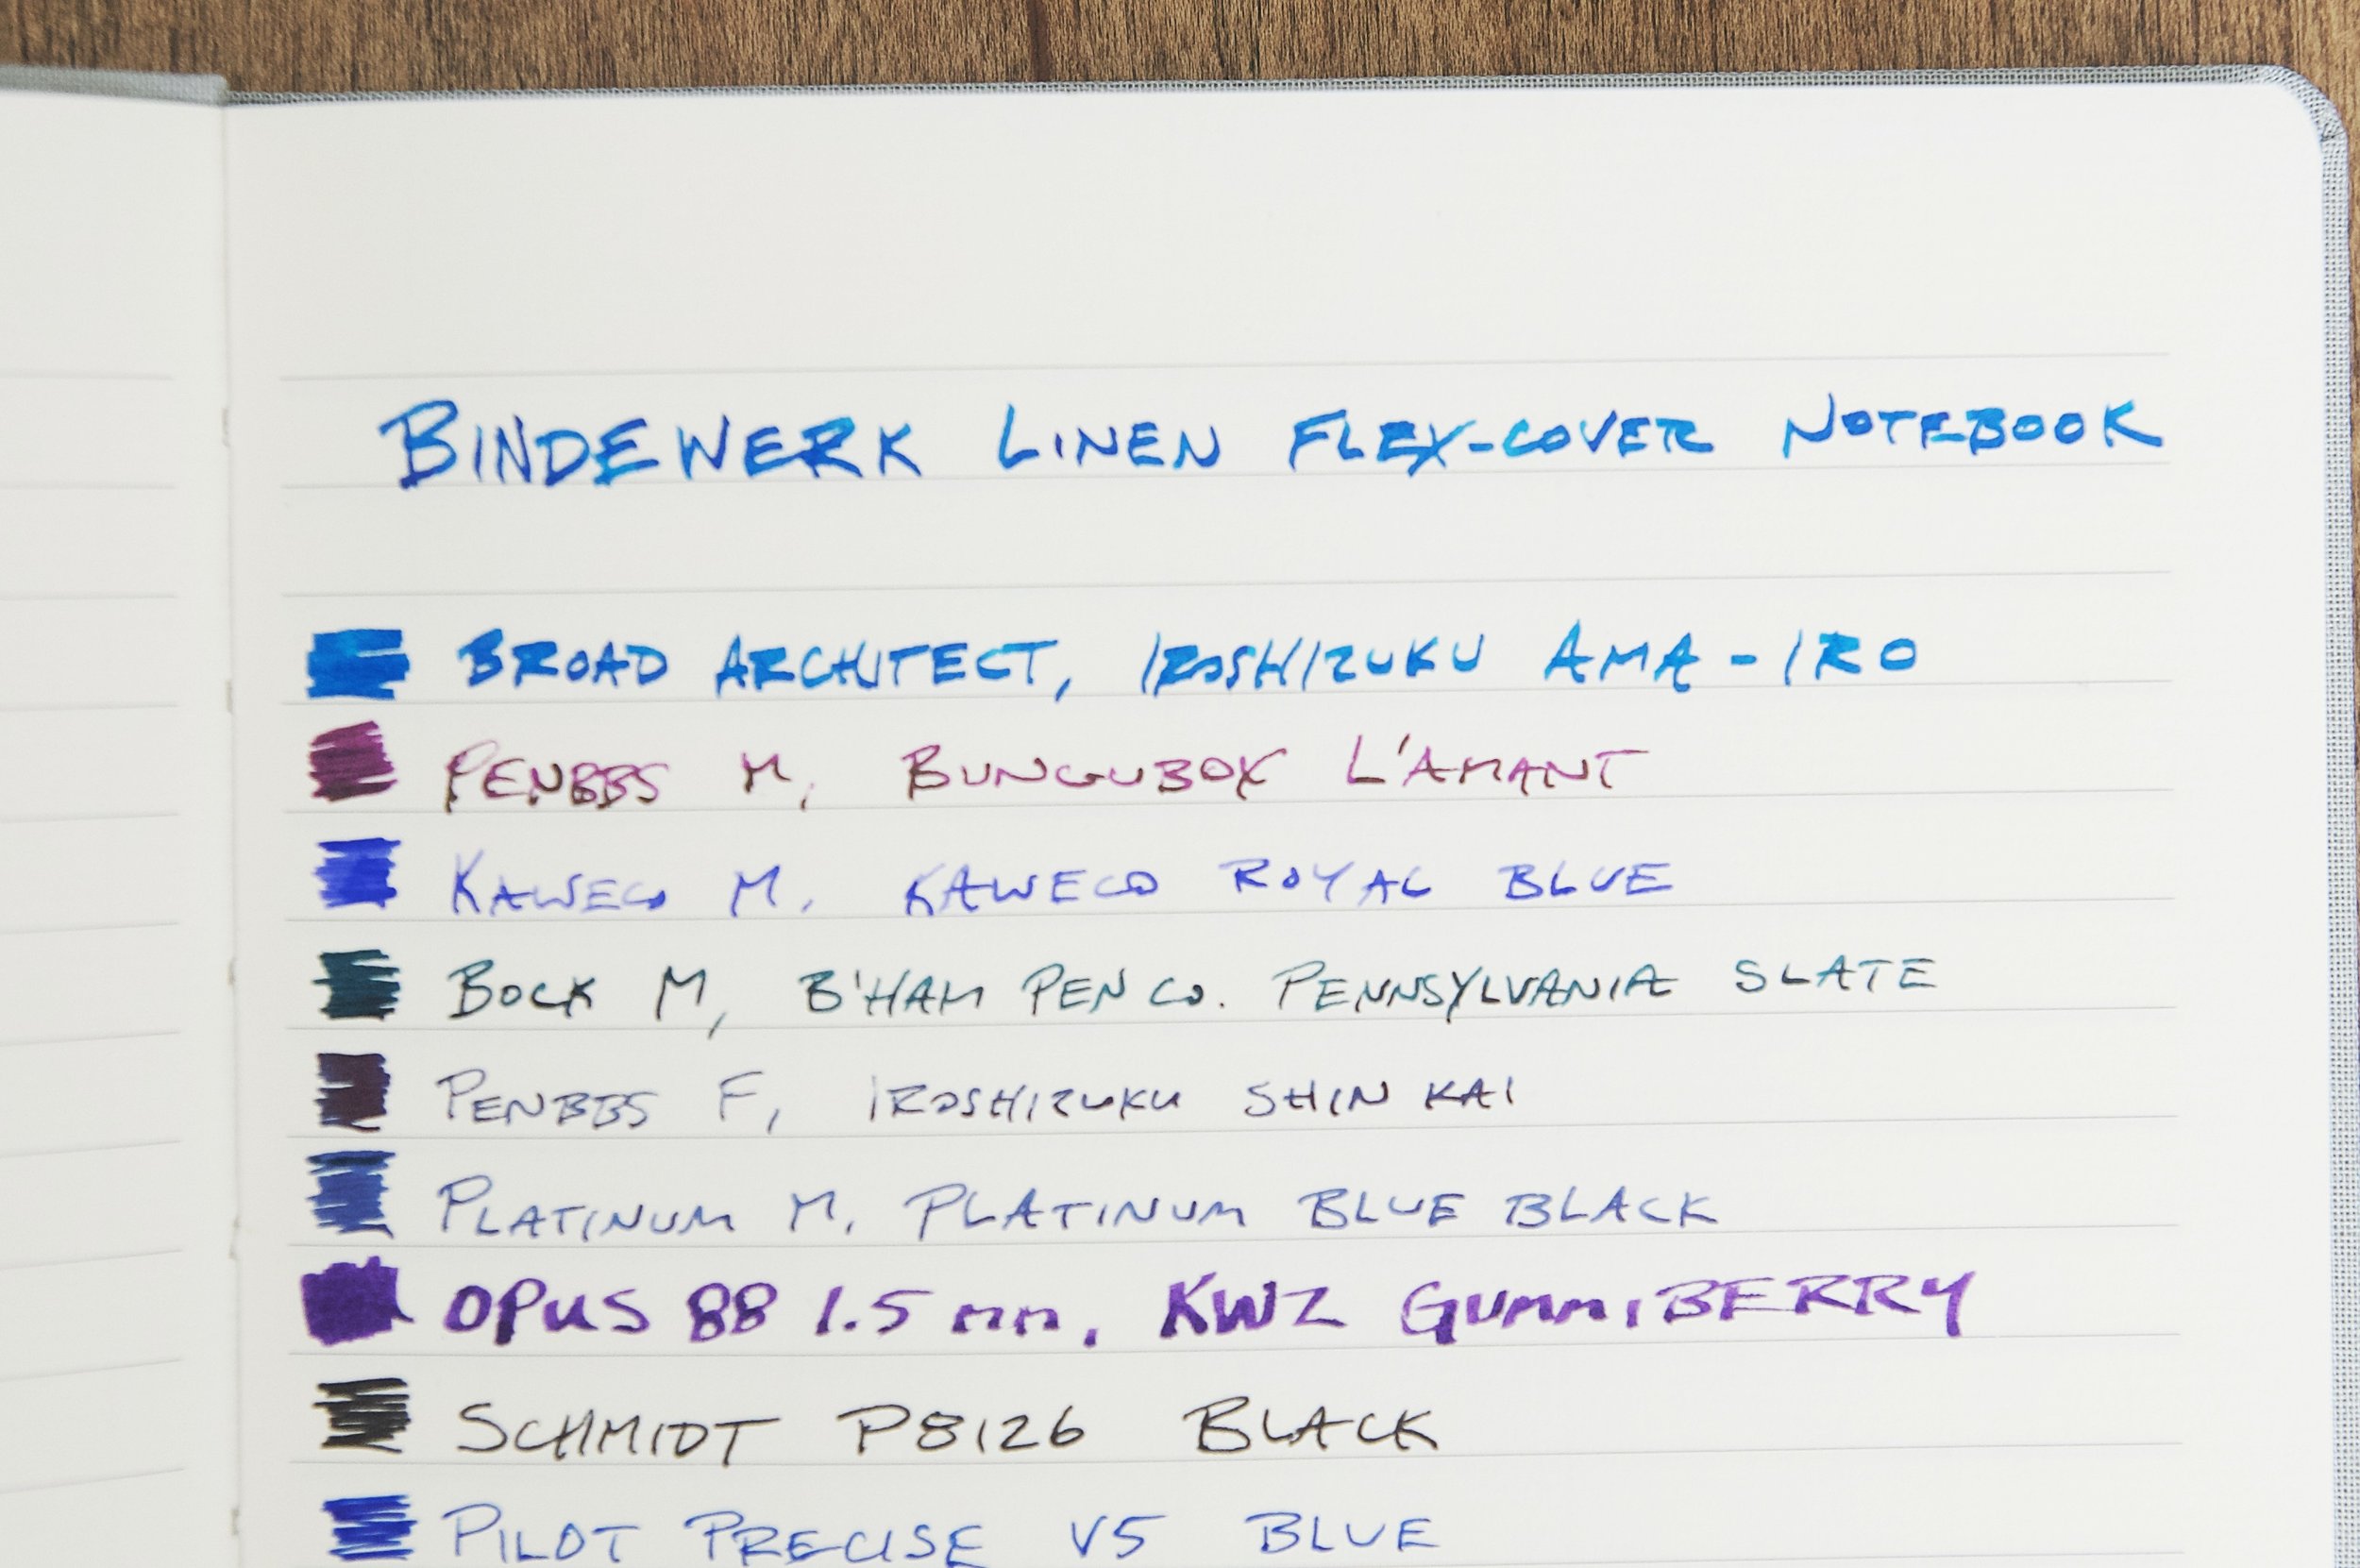 BINDEWERK LINEN FLEX-COVER NOTEBOOK
BROAD ARCHITECT, IROSHIZUKU AMA-IRO
PENBBS M, BUNGUBOX L'AMANT
KAWECO M, KAWECO ROYAL BLUE
BOCK M, B'HAM PEN CO. PENNSYLVANIA SLATE
PENBBS F, IROSHIZUKU SHIN KAI
PLATINUM M, PLATINUM BLUE BLACK
OPUS 88 1.5 mm, KWZ GUMMIBERRY
SCHMIDT P8126 BLACK
PILOT PRECISE V5 BLUE